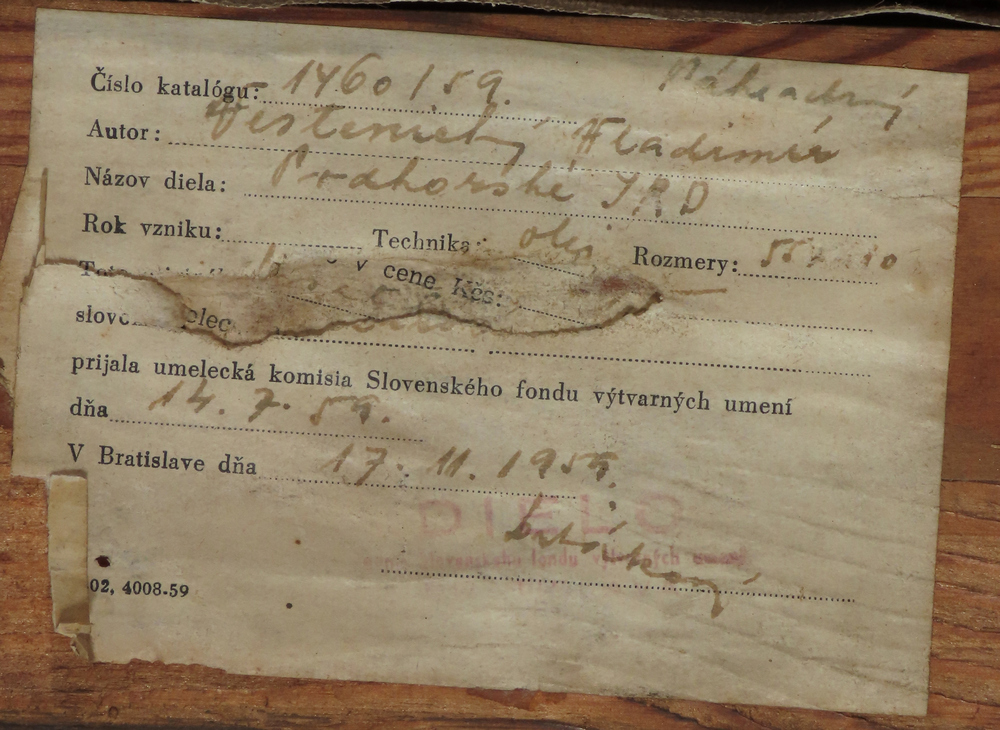 Náhradný
Číslo katalógu: 1460/59.
Autor: Vladimír
Názov diela: Podhorské JRD
Rok vzniku: Technika: olej Rozmery:
v cene Kčs:
prijala umelecká komisia Slovenského fondu výtvarných umení
dňa 14. 7. 59.
V Bratislave dňa 17. 11. 1959.
DIELO
Slovenského fondu výtvarných umení
02, 4008-59